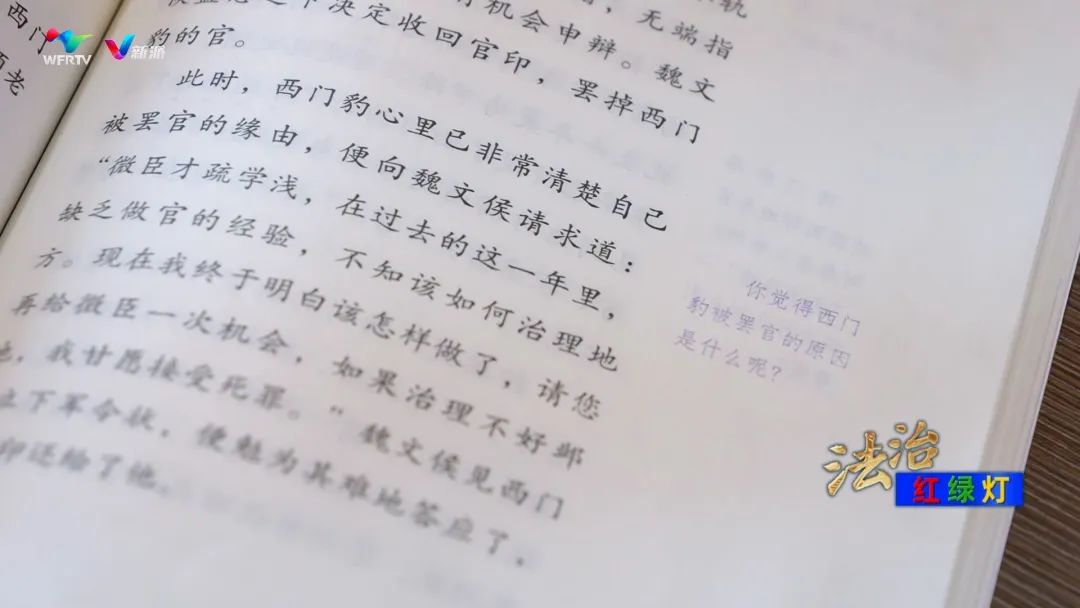 WFRTV
新派
西门
老
轨
，无端指
有机会申辩。魏文
决定收回官印，罢掉西门
豹的官。
此时，西门豹心里已非常清楚自己
被罢官的缘由，便向魏文侯请求道：
“微臣才疏学浅，在过去的这一年里，
缺乏做官的经验，不知该如何治理地
方。现在我终于明白该怎样做了，请您
再给微臣一次机会，如果治理不好邺
地，我甘愿接受死罪。”魏文侯见西门
立下军令状，便勉为其难地答应了，
印还给了他。
你觉得西门
豹被罢官的原因
是什么呢？
法治
红绿灯